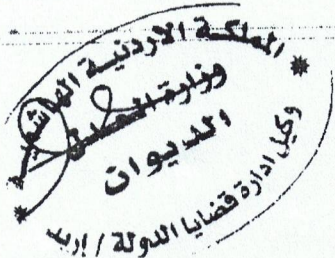 المملكة الاردنية الهاشمية
وزارة العدل
الديوان
وكيل ادارة قضايا الدولة / إربد